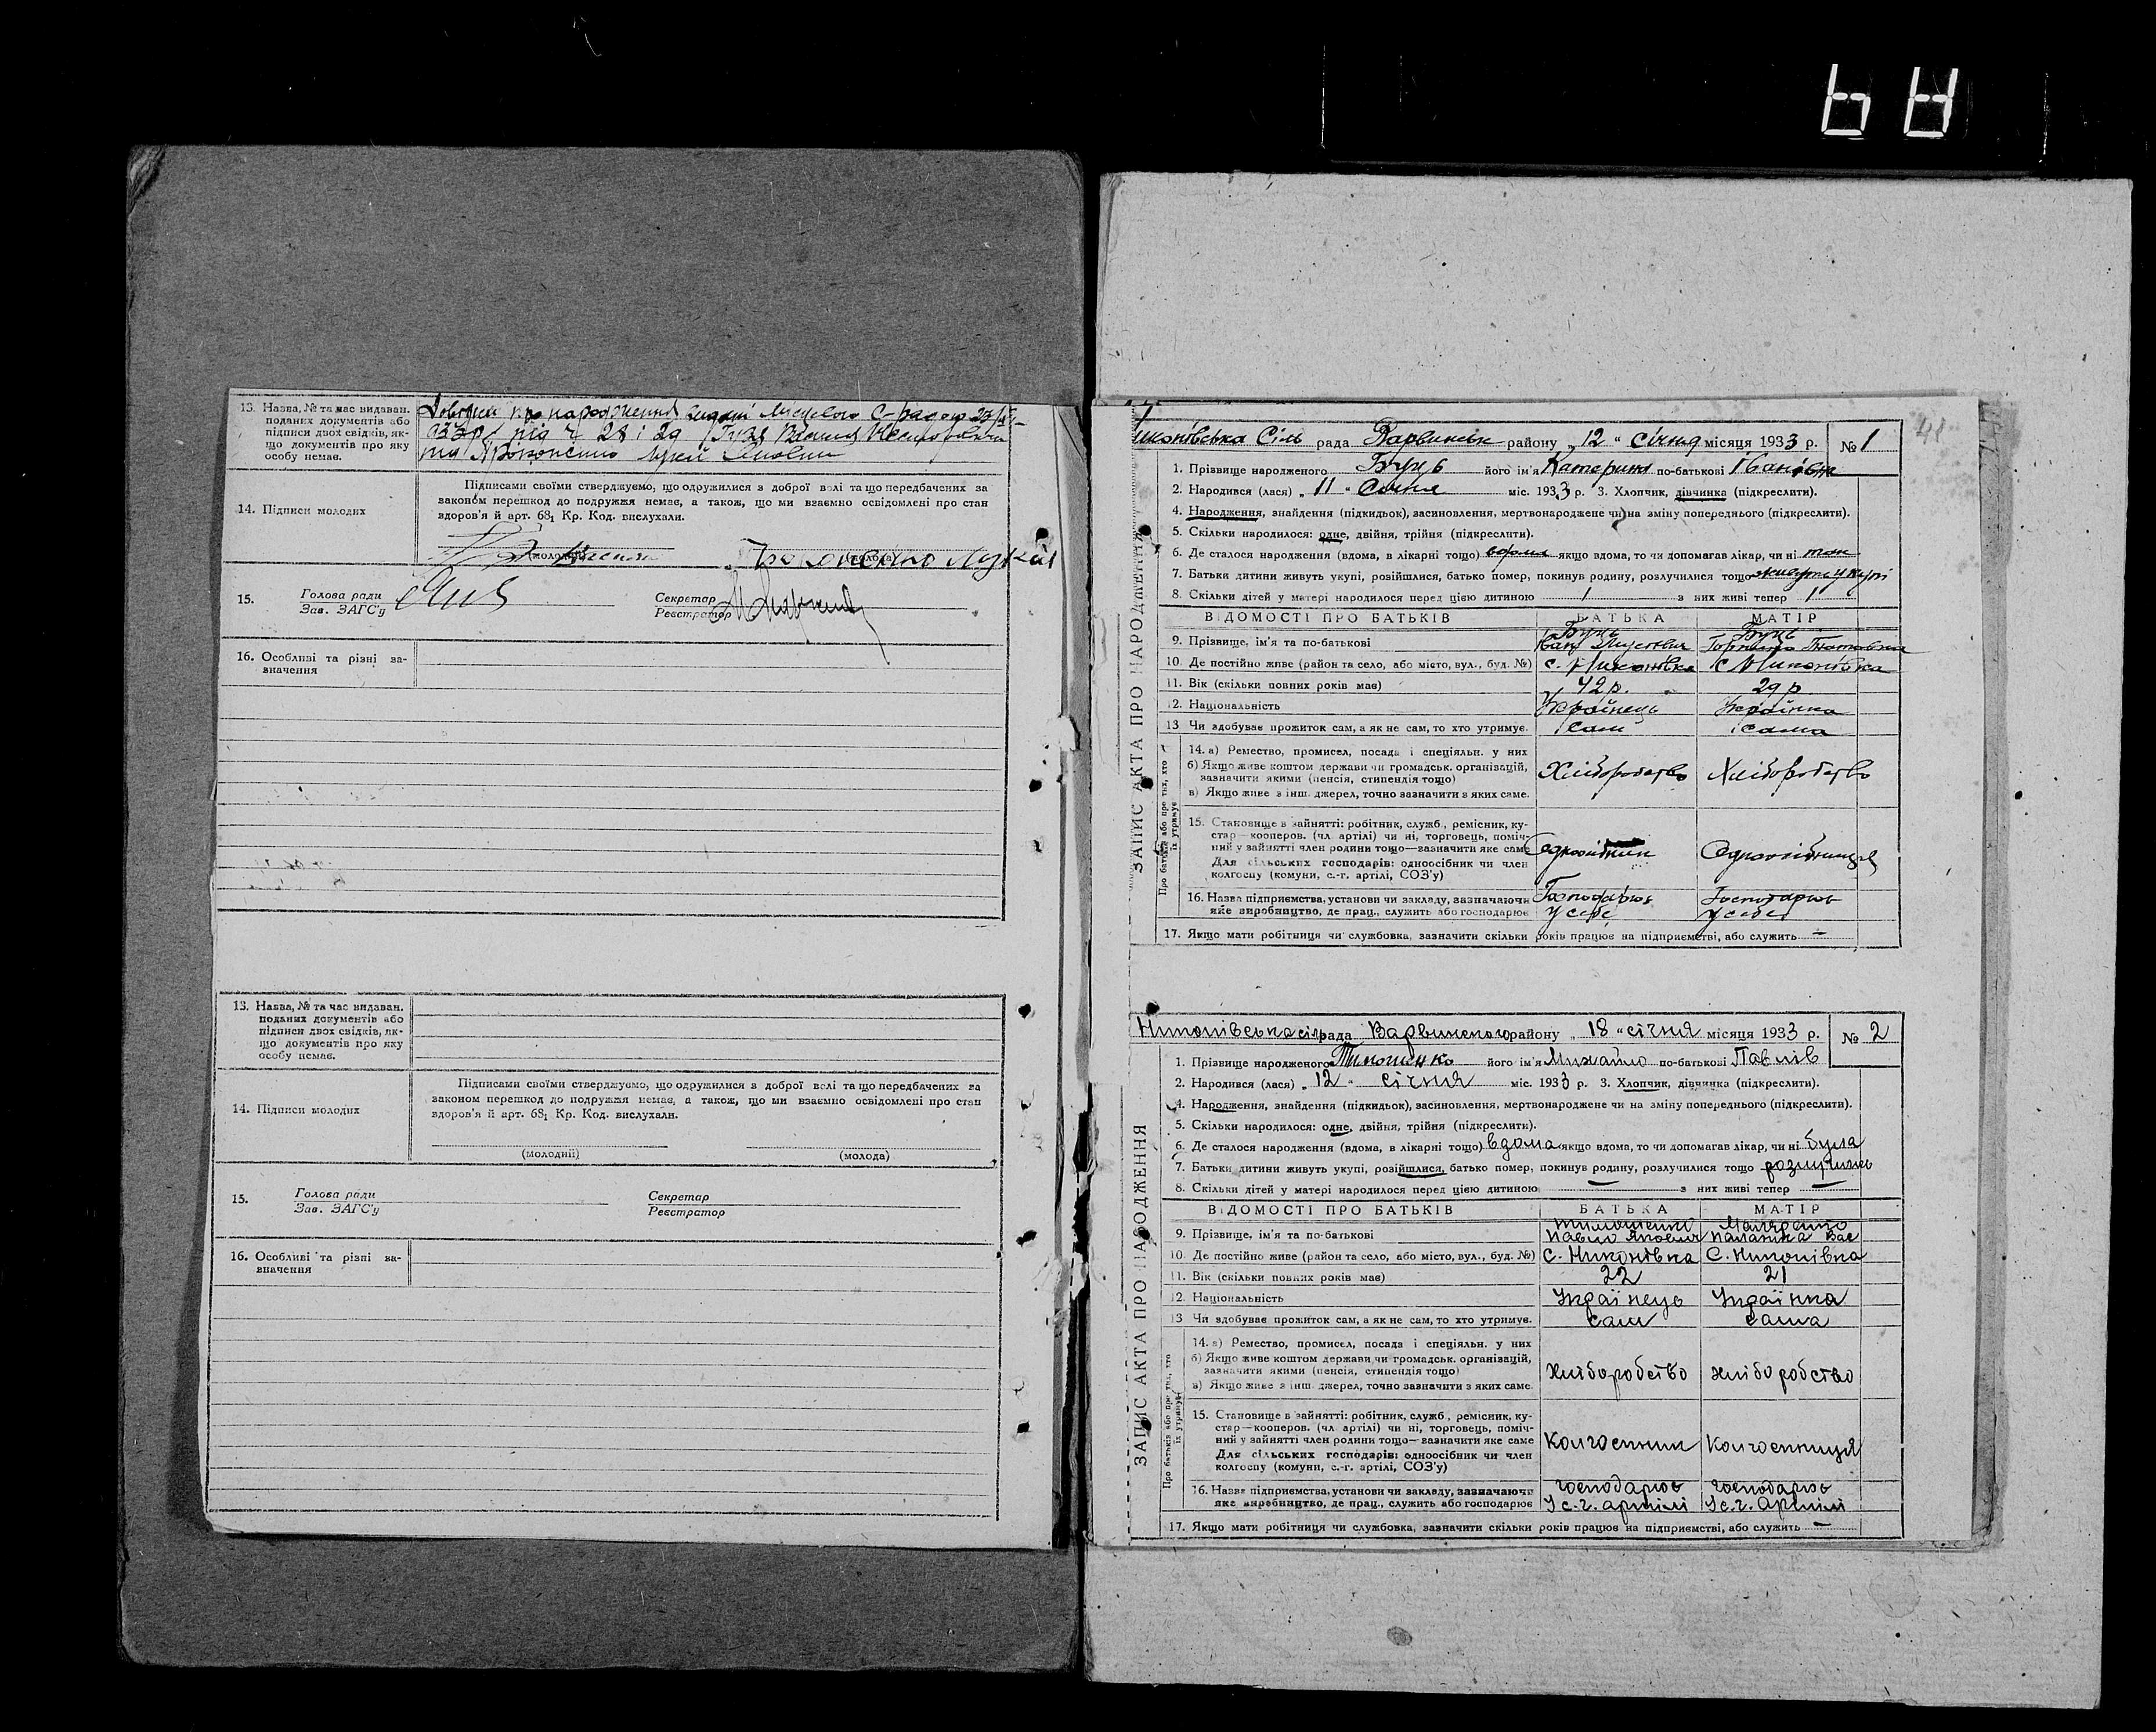 13. Назва, № та час видаван. поданих документів або підписи двох свідків, якщо документів про яку особу немає.
14. Підписи молодих
Підписами своїми стверджуємо, що одружилися з доброї волі та що передбачених за
законом перешкод до подружжя немає, а також, що ми взаємно освідомлені про стан
здоров'я й арт. 68₁ Кр. Код. вислухали.
15.
Голова ради
Зав. ЗАГС'у
Секретар
Реєстратор
16. Особливі та різні зазначення
13. Назва, № та час видаван.
поданих документів або
підписи двох свідків, як-
що документів про яку
особу немає.
14. Підписи молодих
Підписами своїми стверджуємо, що одружилися з доброї волі та що передбачених за
законом перешкод до подружжя немає, а також, що ми взаємно освідомлені про стан
здоров'я й арт. 68₁ Кр. Код. вислухали.
(молодий)
(молода)
15.
Голова ради
Зав. ЗАГС'у
Секретар
Реєстратор
16. Особливі та різні за-
значення
48
ЗАПИС АКТА ПРО НАРОДЖЕННЯ
рада Варвинськ району „12" січня місяця 1933 р. № 1
1. Прізвище народженого Буць його ім'я Катерина по-батькові Іванівна
2. Народився (лася) „11" Січня міс. 1933 р. 3. Хлопчик, дівчинка (підкреслити).
4. Народження, знайдення (підкидьок), засиновлення, мертвонароджене чи на зміну попереднього (підкреслити).
5. Скільки народилося: одне, двійня, трійня (підкреслити).
6. Де сталося народження (вдома, в лікарні тощо) вдома якщо вдома, то чи допомагав лікар, чи ні
7. Батьки дитини живуть укупі, розійшлися, батько помер, покинув родину, розлучилися тощо живуть укупі
8. Скільки дітей у матері народилося перед цією дитиною 1 з них живі тепер 1
ВІДОМОСТІ ПРО БАТЬКІВ БАТЬКА МАТІР
9. Прізвище, ім'я та по-батькові Буць Іван Буць
10. Де постійно живе (район та село, або місто, вул., буд. №) с. Никонівка с. Никонівка
11. Вік (скільки повних років має) 42 р. 29 р.
12. Національність Українець Українка
13 Чи здобуває прожиток сам, а як не сам, то хто утримує. Сам Сама
Про батьків або про тих, хто їх утримує
14. а) Ремество, промисел, посада і спеціяльн. у них
б) Якщо живе коштом держави чи громадськ. організацій,
зазначити якими (пенсія, стипендія тощо)
в) Якщо живе з інш. джерел, точно зазначити з яких саме.
Хліборобство Хліборобство
15. Становище в зайнятті: робітник, служб., ремісник, ку-
стар—кооперов. (чл. артілі) чи ні, торговець, поміч-
ний у зайнятті член родини тощо—зазначити яке саме
Для сільських господарів: одноосібник чи член
колгоспу (комуни, с.-г. артілі, СОЗ'у)
Одноосібник Одноосібниця
16. Назва підприємства, установи чи закладу, зазначаючи Господарює Господарює
яке виробництво, де прац., служить або господарює у себе у себе
17. Якщо мати робітниця чи службовка, зазначити скільки років працює на підприємстві, або служить —
ЗАПИС АКТА ПРО НАРОДЖЕННЯ
Никонівська сільрада Варвинського району „18" січня місяця 1933 р. № 2
1. Прізвище народженого Тимошенко його ім'я Михайло по-батькові Павлів
2. Народився (лася) „12" січня міс. 1933 р. 3. Хлопчик, дівчинка (підкреслити).
4. Народження, знайдення (підкидьок), засиновлення, мертвонароджене чи на зміну попереднього (підкреслити).
5. Скільки народилося: одне, двійня, трійня (підкреслити).
6. Де сталося народження (вдома, в лікарні тощо) вдома якщо вдома, то чи допомагав лікар, чи ні була
7. Батьки дитини живуть укупі, розійшлися, батько помер, покинув родину, розлучилися тощо
8. Скільки дітей у матері народилося перед цією дитиною — з них живі тепер —
ВІДОМОСТІ ПРО БАТЬКІВ БАТЬКА МАТІР
9. Прізвище, ім'я та по-батькові Тимошенко Павло Яковл Маляренко Палажка Вас
10. Де постійно живе (район та село, або місто, вул., буд. №) С. Никонівка С. Никонівка
11. Вік (скільки повних років має) 22 21
12. Національність Українець Українка
13 Чи здобуває прожиток сам, а як не сам, то хто утримує. сам сама
Про батьків або про тих, хто їх утримує
14. а) Ремество, промисел, посада і спеціяльн. у них
б) Якщо живе коштом держави чи громадськ. організацій,
зазначити якими (пенсія, стипендія тощо)
в) Якщо живе з інш. джерел, точно зазначити з яких саме.
хліборобство хліборобство
15. Становище в зайнятті: робітник, служб., ремісник, ку-
стар—кооперов. (чл. артілі) чи ні, торговець, поміч-
ний у зайнятті член родини тощо—зазначити яке саме
Для сільських господарів: одноосібник чи член
колгоспу (комуни, с.-г. артілі, СОЗ'у)
Колгоспник Колгоспниця
16. Назва підприємства, установи чи закладу, зазначаючи господарює господарює
яке виробництво, де прац., служить або господарює У с.-г. артілі У с.-г. артілі
17. Якщо мати робітниця чи службовка, зазначити скільки років працює на підприємстві, або служить —